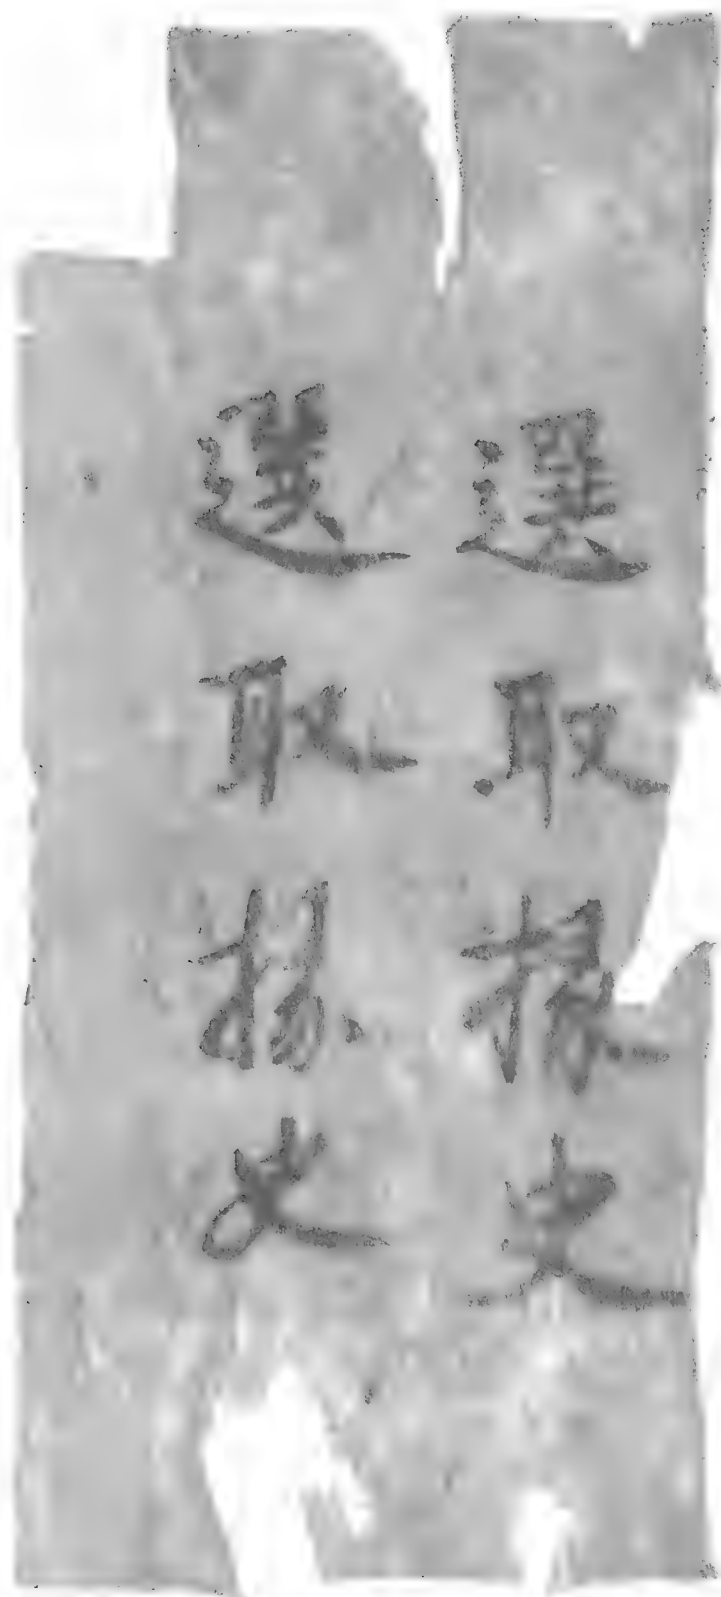 選取掾史
選取掾史